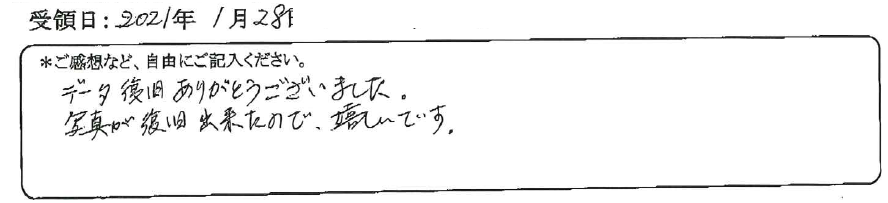 受領日：2021年 1月28日
＊ご感想など、自由にご記入ください。
データ復旧ありがとうございました。
写真が復旧出来たので、嬉しいです。